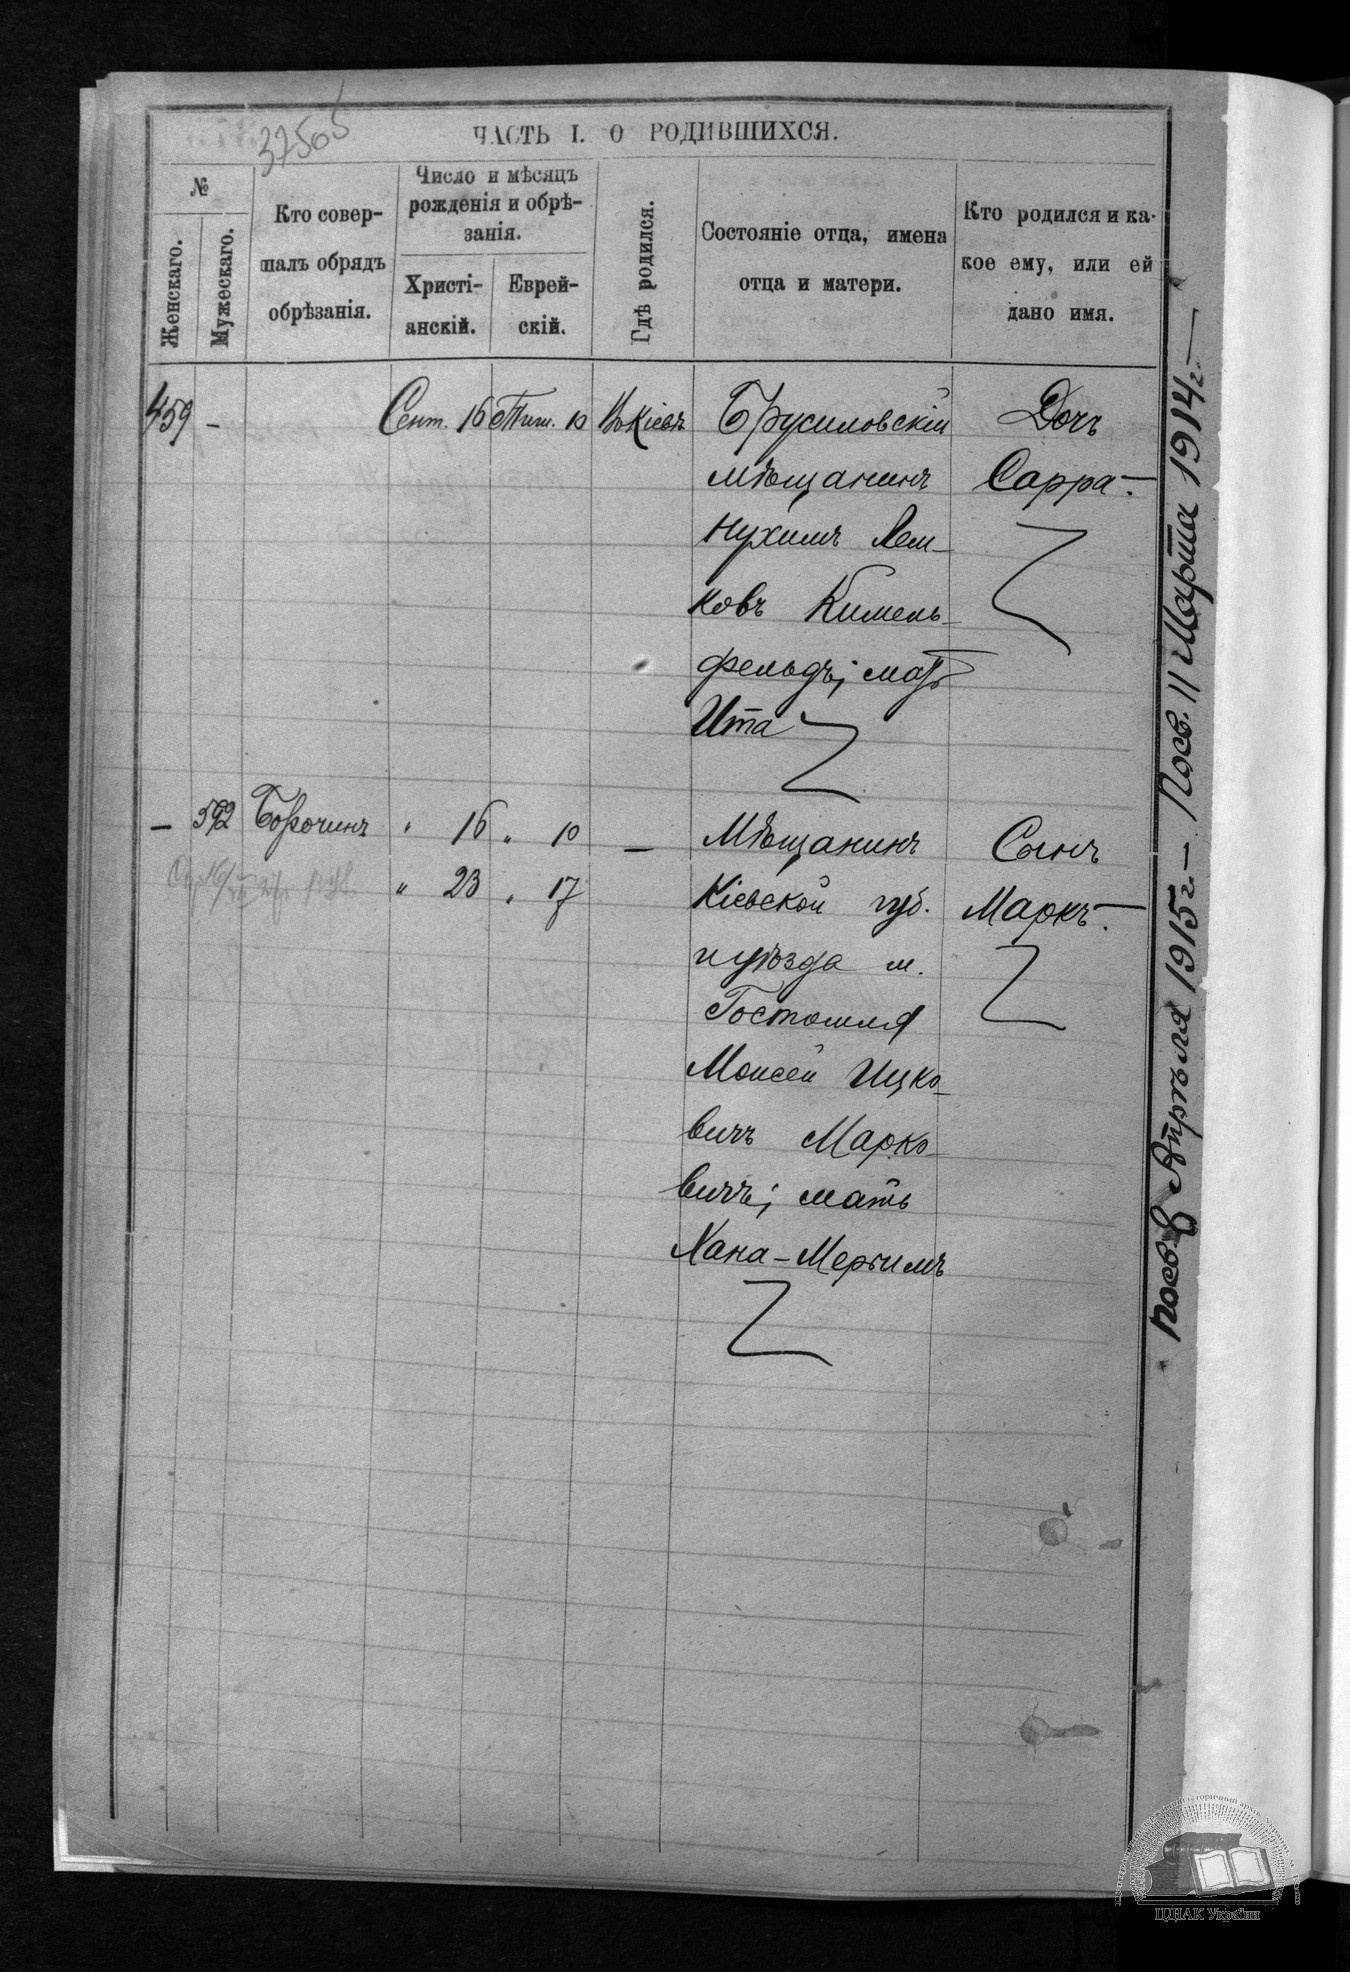 37505
ЧАСТЬ I. О РОДИВШИХСЯ.
№
Женскаго.
Мужескаго.
Кто совер-
шалъ обрядъ
обрѣзанія.
Число и мѣсяцъ
рожденія и обрѣ-
занія.
Христі-
анскій.
Еврей-
скій.
Гдѣ родился.
Состояніе отца, имена
отца и матери.
Кто родился и ка-
кое ему, или ей
дано имя.
459 – Сент. 16 Тиш. 10 Въ Кіевѣ Брусиловскій Дочь
мѣщанинъ Сарра.
Нухимъ Лей-
ковъ Кимель-
фельдъ; мать
Ита
– 592 Борочинъ " 16 " 10 – Мѣщанинъ Сынъ
" 23 " 17 Кіевской губ. Маркъ.
и уѣзда м.
Гостомля
Моисей Ицко-
вичъ Марко-
вичъ; мать
Хана-Мерьимъ
Посв. 8 Апрѣля 1915 г. – Посв. 11 Марта 1914 г. –
ЦДІАК України